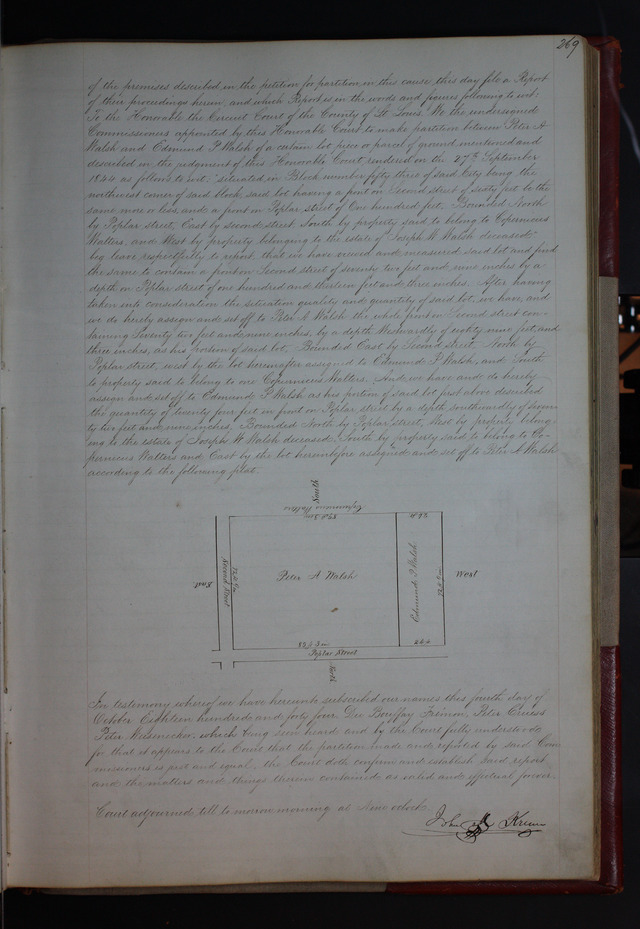 269
of the premises described in the petition for partition in this cause, this day file a Report
of their proceedings herein, and which Report is in the words and figures following to wit:
To the Honorable the Circuit Court of the County of St. Louis. We the undersigned
Commissioners appointed by this Honorable Court to make partition between Peter A
Walsh and Edmund P Walsh of a certain lot piece or parcel of ground mentioned and
described in the judgment of this Honorable Court rendered on the 27th September
1844 as follows to wit, "situated in Block number fifty three of said City being the
northwest corner of said block, said lot having a front on Second street of sixty feet be the
same more or less, and a front on Poplar street of One hundred feet, Bounded North
by Poplar street, East by second street South by property said to belong to Copernicus
Walters, and West by property belonging to the estate of Joseph W Walsh deceased
beg leave respectfully to report, that we have viewed and measured said lot and find
the same to contain a front on Second street of seventy two feet and nine inches by a
depth on Poplar street of one hundred and thirteen feet and three inches. After having
taken into consideration the situation quality and quantity of said lot, we have, and
we do hereby assign and set off to Peter A Walsh the whole front on Second street con-
taining Seventy two feet and nine inches, by a depth Westwardly of eighty nine feet and
three inches, as his portion of said lot, Bounded East by Second street North by
Poplar street, west by the lot hereinafter assigned to Edmund P Walsh, and South
to property said to belong to one Copernicus Walters. And we have and do hereby
assign and set off to Edmund P Walsh as his portion of said lot first above described
the quantity of twenty four feet in front on Poplar street by a depth southwardly of seven-
ty two feet and nine inches. Bounded North by Poplar street, West by property belong-
ing to the estate of Joseph W Walsh deceased South by property said to belong to Co-
pernicus Walters and East by the lot hereinbefore assigned and set off to Peter A Walsh
according to the following plat.
South
Copernicus Walters
East
Second Street
Peter A Walsh
Edmund P Walsh
West
Poplar Street
North
In testimony whereof we have hereunto subscribed our names this fourth day of
October Eighteen hundred and forty four
Peter
which being seen heard and by the Court fully understood
for that it appears to the Court that the partition made and reported by said Com
missioners is just and equal, the Court doth confirm and establish said report
and the matters and things therein contained as valid and effectual forever
Court adjourned till to morrow morning at Nine oclock
John M Krum